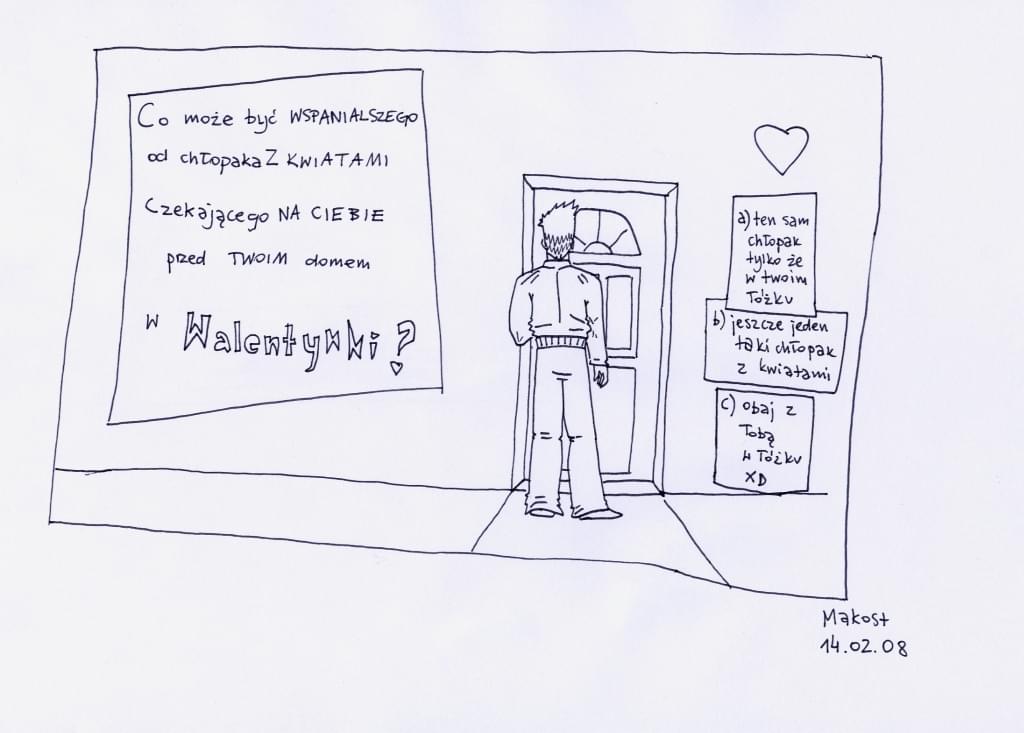 Co może być WSPANIALSZEGO
od chłopaka Z KWIATAMI
Czekającego NA CIEBIE
przed TWOIM domem
w Walentynki?
a) ten sam
chłopak
tylko że
w twoim
łóżku
b) jeszcze jeden
taki chłopak
z kwiatami
c) obaj z
Tobą
w łóżku
XD
Mąkost
14.02.08